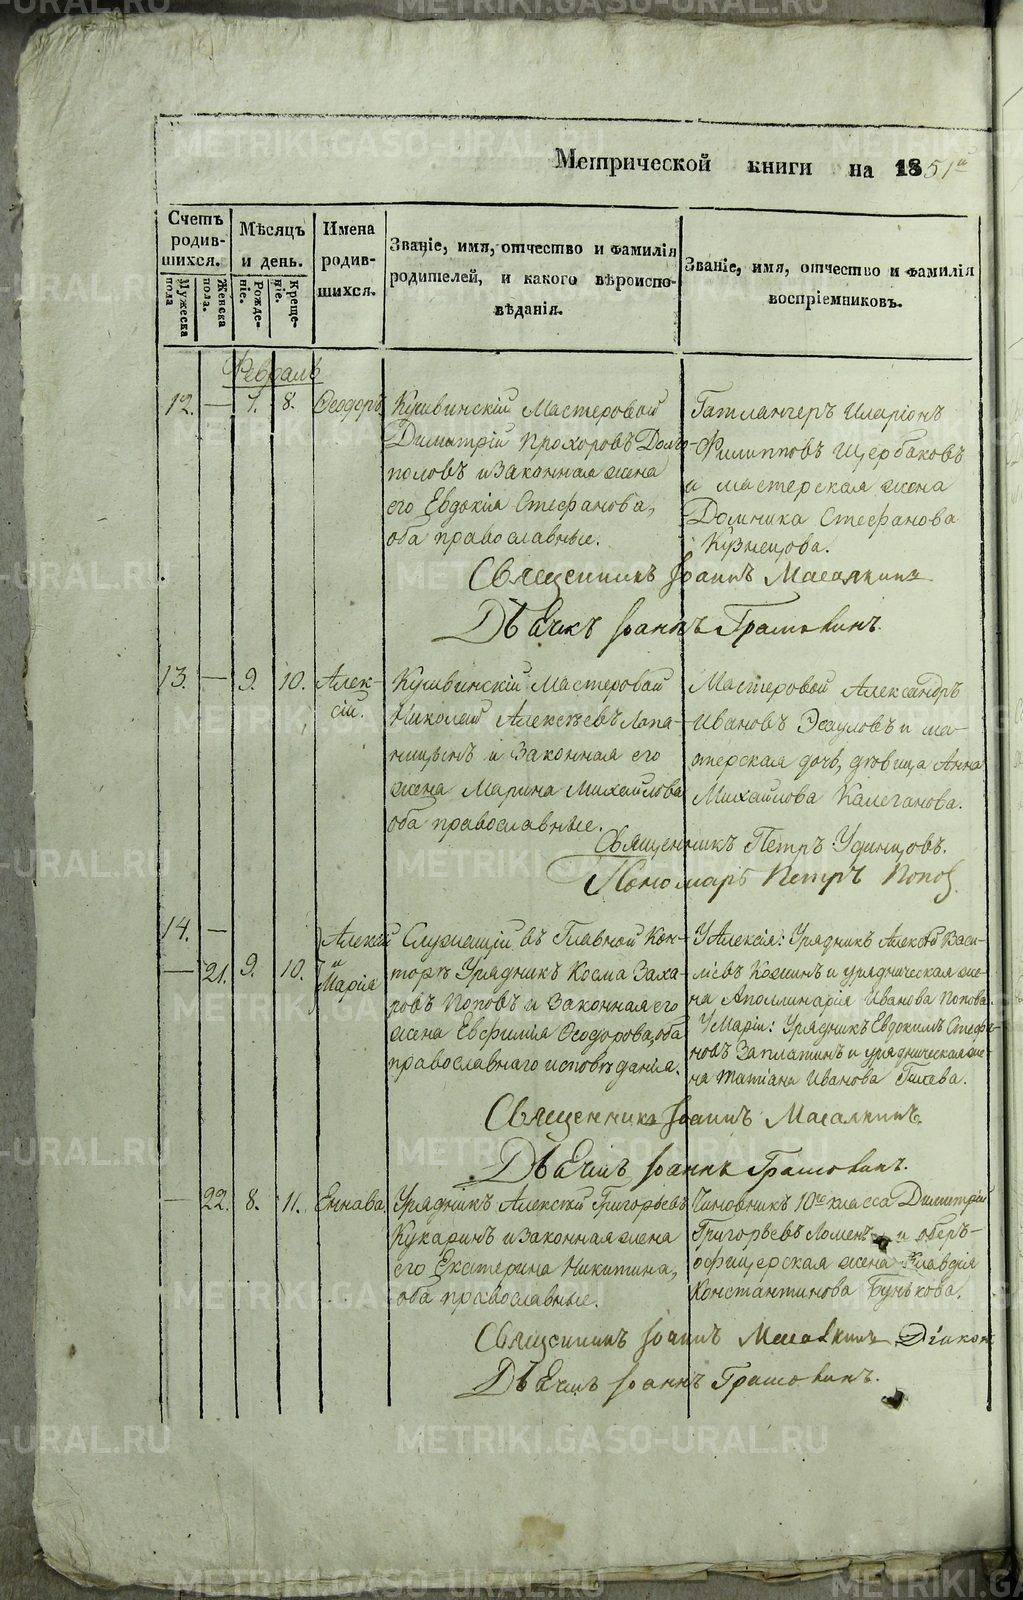 METRIKI.GASO-URAL.RU
Метрической книги на 1851й
Счетъ родив-шихся.
Мѣсяцъ и день.
Имена родив-шихся.
Званіе, имя, отчество и фамилія родителей, и какого вѣроиспо-вѣданія.
Званіе, имя, отчество и фамилія воспріемниковъ.
Мужеска пола
Женска пола.
Рожде-ніе.
Креще-ніе.
Февраль
12. — 7. 8. Ѳеодоръ
Кушвинскій Мастеровой
Димитрій Прохоровъ Долго-
половъ и законная жена
его Евдокія Стефанова,
оба православные.
Гатлангеръ Иларіонъ
Филипповъ Щербаковъ
и мастерская жена
Домника Стефанова
Кузнецова.
Священникъ Іоаннъ
Дьячекъ Іоаннъ
13. — 9. 10. Алек-
сій.
Кушвинскій Мастеровой
Николай Алексѣевъ Лапа-
ницынъ и законная его
жена Марина Михайлова
оба православные.
Мастеровой Александръ
Ивановъ Эсауловъ и ма-
стерская дочь, дѣвица Анна
Михайлова Калеганова.
Священникъ Петръ Удинцовъ.
Пономарь Петръ Попов
14. —
— 21. 9. 10.
Алексій
и
Марія
Служащій въ Главной Кон-
торѣ Урядникъ Косма Заха-
ровъ Поповъ и законная его
жена Евфимія Ѳеодорова, оба
православнаго исповѣданія.
У Алексія: Урядникъ Алексѣй Васи-
льевъ и урядническая же-
на Аполлинарія Иванова Попова.
У Маріи: Урядникъ Евдокимъ Стефа-
новъ Заплатинъ и урядническая же-
на Татіана Иванова Гилева.
Священникъ Іоаннъ
Дьячекъ Іоаннъ
— 22. 8. 11.
Урядникъ Алексѣй Григорьевъ
Кукаринъ и законная жена
его Екатерина Никитина,
оба православные.
Чиновникъ 10го класса Димитрій
Григорьевъ и оберъ-
офицерская жена Клавдія
Константинова Бунькова.
Священникъ Іоаннъ Діакон
Дьячекъ Іоаннъ